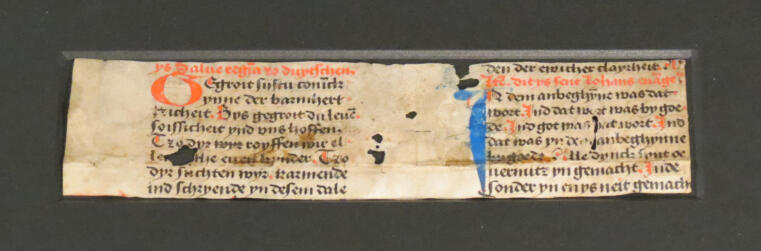 ys Salue regīa zo duytschen.
Gegroit sijstu conīck
ynne der barmhert
zicheit. Bys gegroit du leuē
soissicheit ynd vns hoffen.
Tzo dyr wyr royffen wir el
le euen kynder. Tzo
dyr suchten wyr. karmende
ind schryende yn desem dale
den der ewicher clayrheit.
dit ys sent Johans euāge
IN dem anbeghyne was dat
wort. Ind dat wort was by goe
de. Ind got was dat wort. Ind
dat was yn dem anbeghynne
by goede. Alle dynck synt oe
uermitz yn gemacht. Inde
sonder yn en ys neit gemach